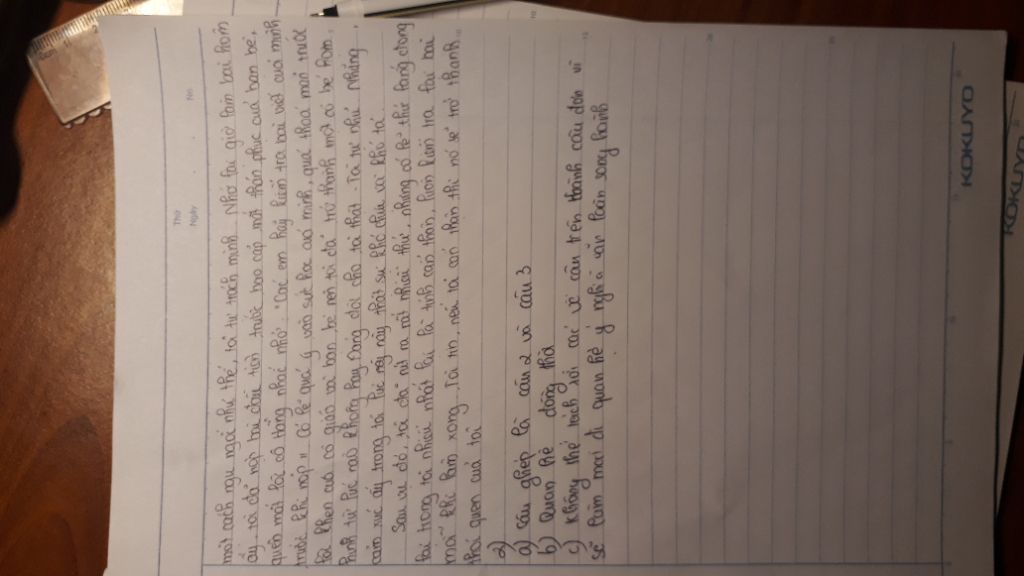 Thứ
Ngày
No.
một cách ngu ngơ như thế, tôi tự trách mình. Nhớ lại giờ làm bài hôm
ấy, tôi đã nộp bài đầu tiên trước bao cặp mắt thán phục của bạn bè,
quên mất lời cô từng nhắc nhở: "Các em hãy kiểm tra bài viết của mình
trước khi nộp". Có lẽ quá ỷ vào sức học của mình, quá thoả mãn trước
lời khen của cô giáo và bạn bè mà tôi đã trở thành một cô bé kiêm
hãnh từ lúc nào không hay. Cũng dối cho tôi thật. Tôi tự nhủ những
cảm xúc ấy trong tôi lúc này này thật sự khó chịu và khó tả.
Sau lần đó, tôi đã rút ra rất nhiều thứ, nhưng có lẽ thứ làng chung
lại trong tôi nhiều nhất lại là tính cẩn thận, luôn kiểm tra lại bài
mỗi khi làm xong. Tôi tin, nếu tôi cẩn thận thì nó sẽ trở thành
thói quen của tôi
2)
a) Câu ghép là câu 2 và câu 3
b) Quan hệ đồng thời
c) Không thể tách rời các vế câu trên thành câu đơn vì
sẽ làm mất đi quan hệ ý nghĩa vẫn hoàn song hành
KOKUYO
KOKUYO